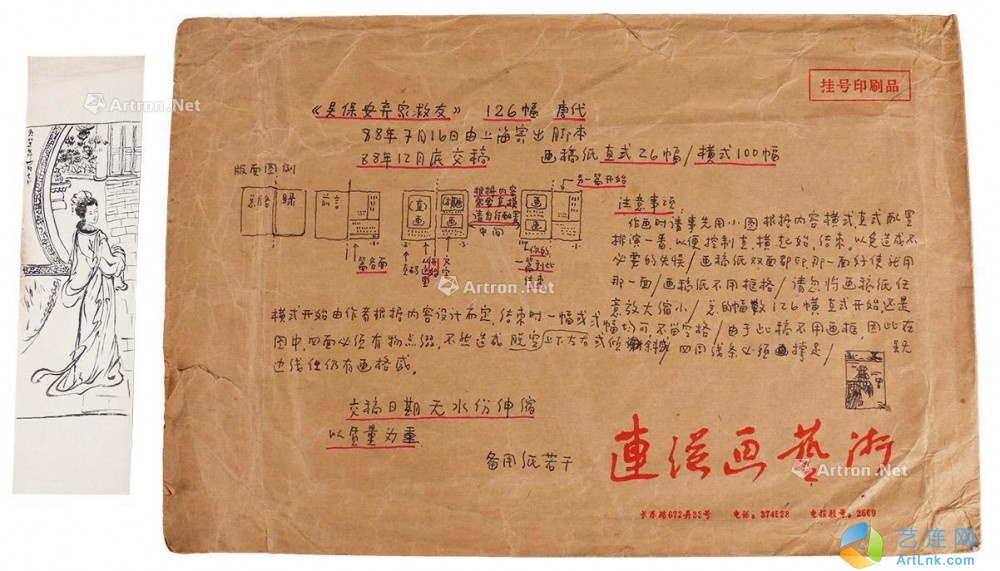 挂号印刷品
《吴保安弃家救友》 126幅 唐代
88年7月16日由上海寄出脚本
88年12月底交稿 画稿纸直式26幅/横式100幅
版面图例
另一篇开始
注意事项:
根据内容
需要直横
请自行配置
中间
直画
画
画
前言
篇名画
页码
文字
你的
一篇到此
结束
作画时请事先用小图根据内容横式直式配置
排演一番,以便控制直、横起始、结束。以免造成不
必要的失误/画稿纸双面都印,那一面好使就用
那一面/画稿纸不用框格/请勿将画稿纸任
意放大缩小/总的幅数126幅横直式开始还是
横式开始由作者根据内容设计而定,结束时一幅或式幅均可,不留空格/由于此搞不用画框,因此在
图中,四面必须有物点缀,不能造成脱空上下左右式倾斜余感/四周线条必须画撑足/虽无
边线但仍有画格感。
交稿日期无水份伸缩
以质量为重
备用纸若干
連环画藝術
长乐路672弄33号 电话:374528 电报挂号:2569
Artron.Net
Artron.Net
Artron.Net
Artron.Net
Artron.Net
艺连网
ArtLnk.com